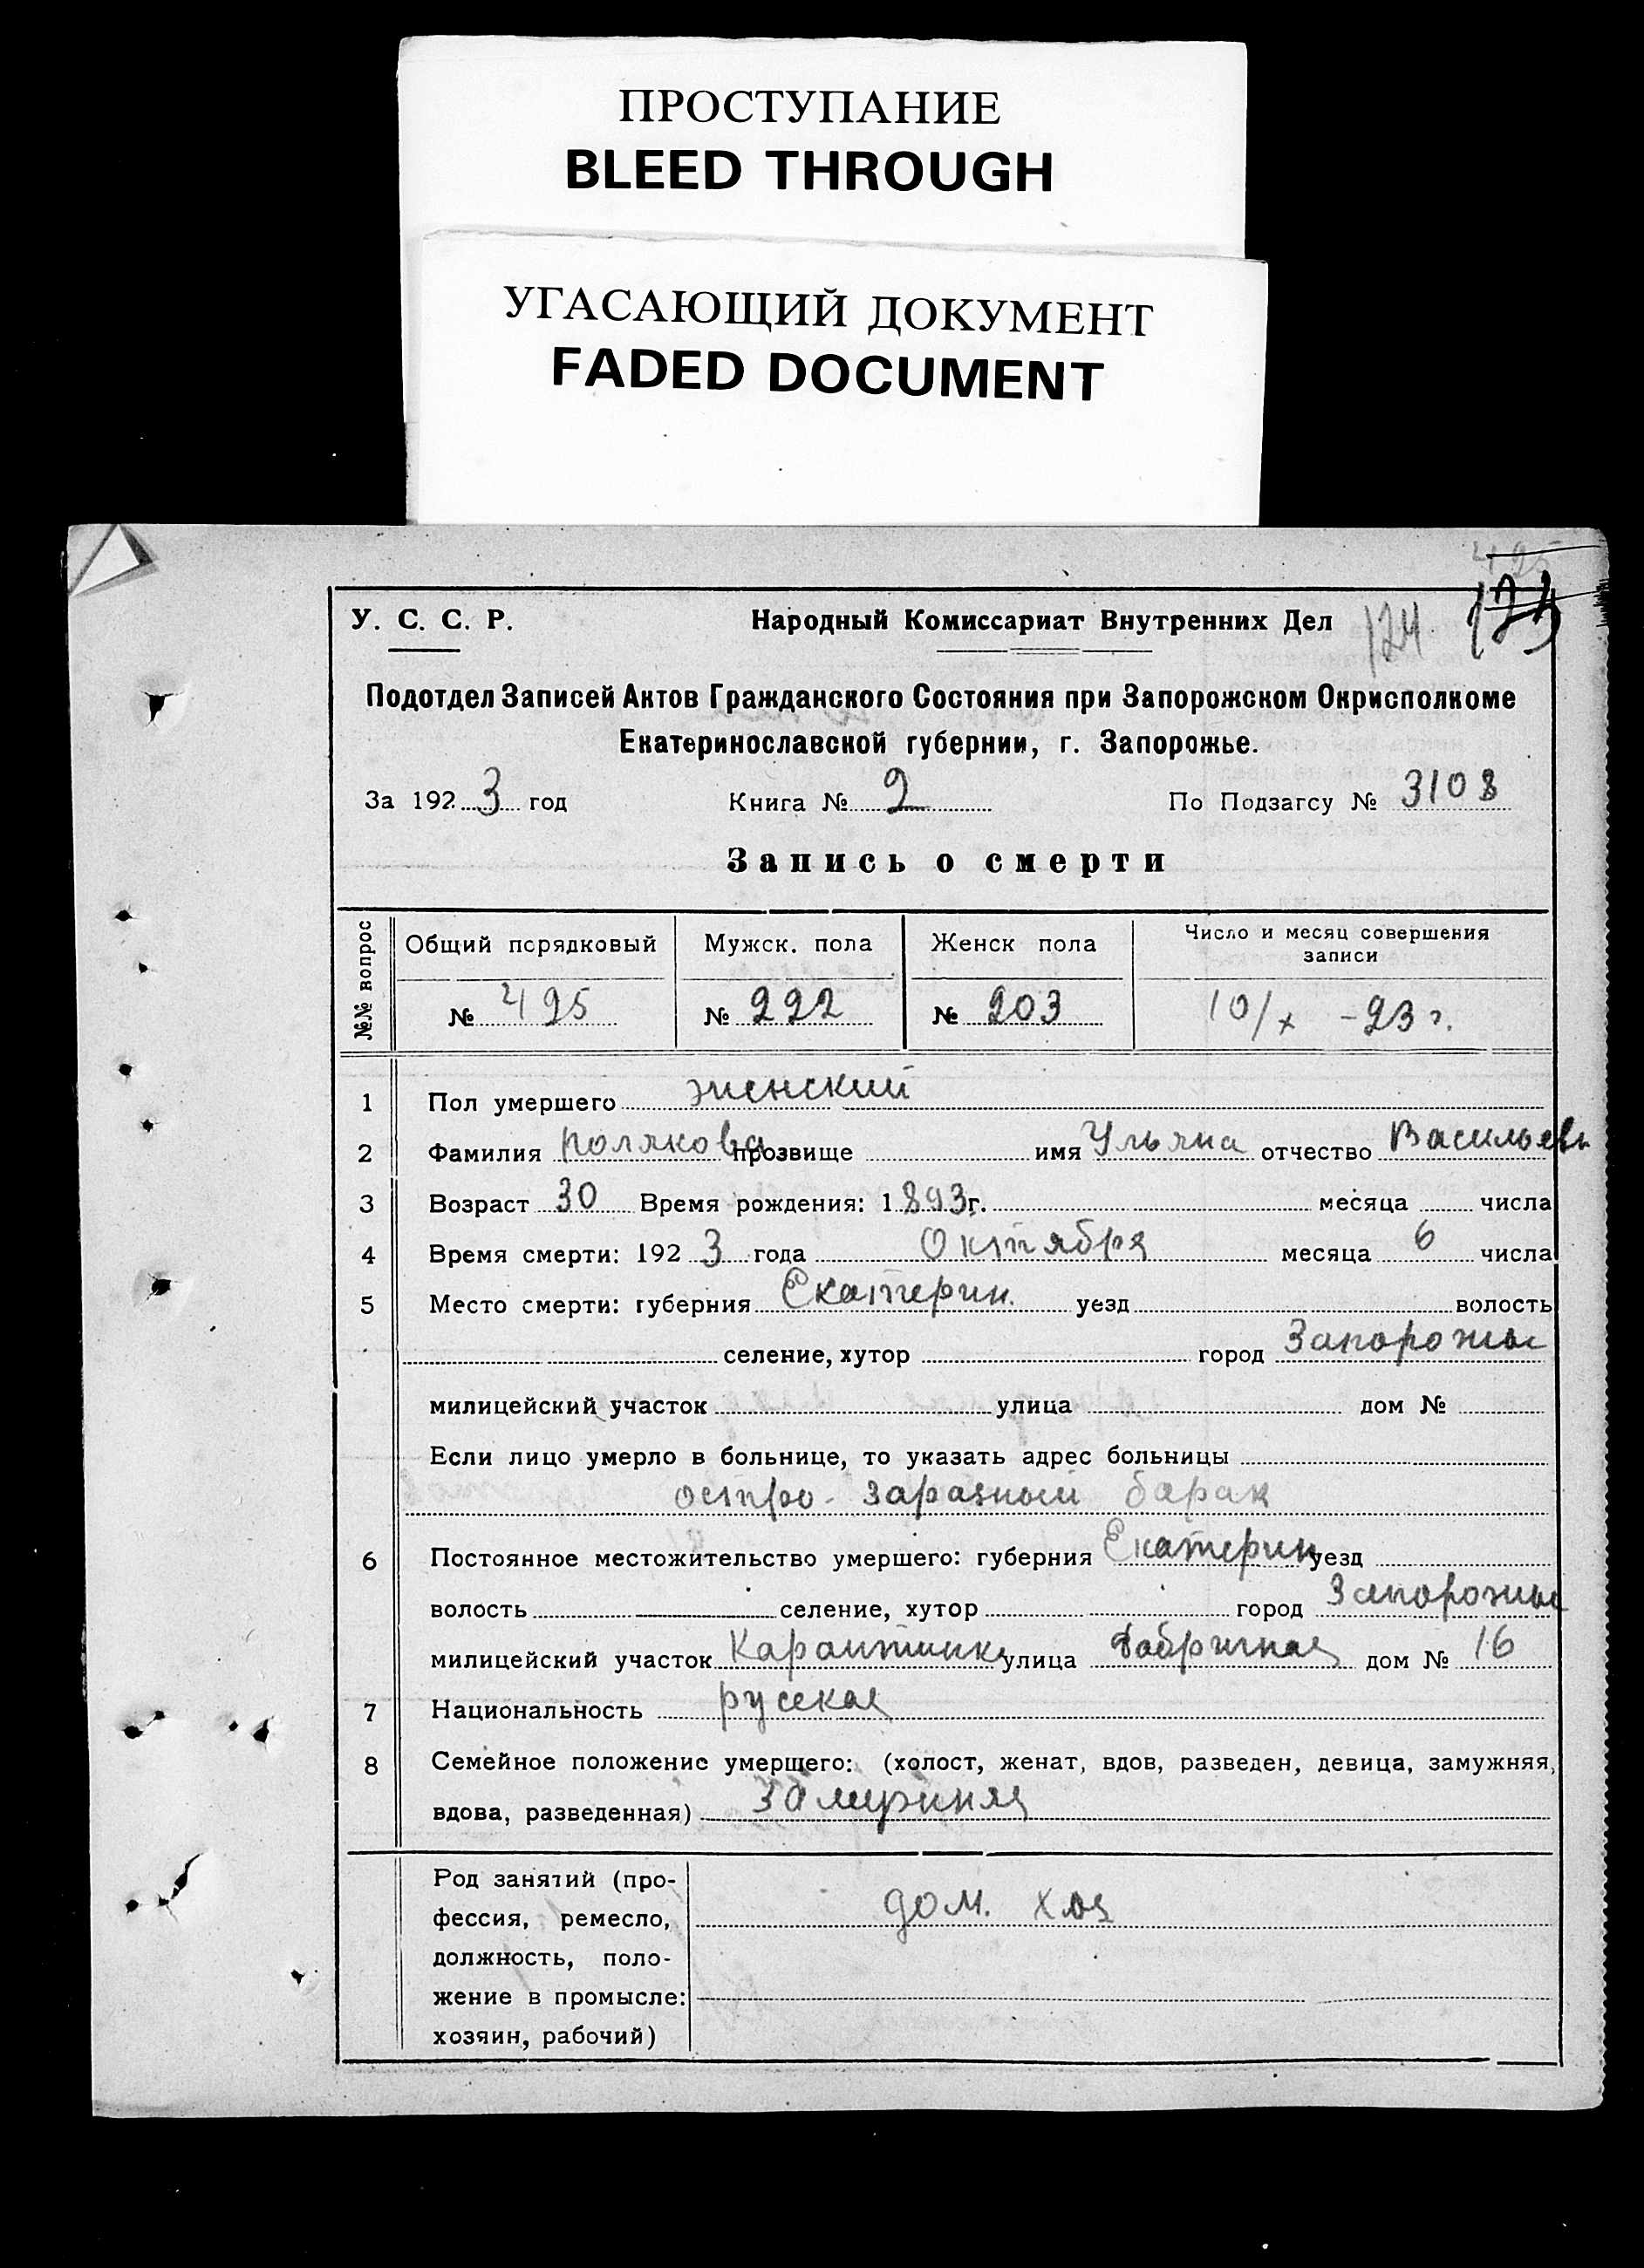 ПРОСТУПАНИЕ
BLEED THROUGH
УГАСАЮЩИЙ ДОКУМЕНТ
FADED DOCUMENT
425
У. С. С. Р. Народный Комиссариат Внутренних Дел 124
Подотдел Записей Актов Гражданского Состояния при Запорожском Окрисполкоме
Екатеринославской губернии, г. Запорожье.
За 1923 год Книга № 2 По Подзагсу № 3108
Запись о смерти
№№ вопрос Общий порядковый Мужск. пола Женск пола Число и месяц совершения
записи
№ 425 № 222 № 203 10/X - 23 г.
1 Пол умершего женский
2 Фамилия Полякова прозвище имя Ульяна отчество Васильевн
3 Возраст 30 Время рождения: 1893г. месяца числа
4 Время смерти: 1923 года Октября месяца 6 числа
5 Место смерти: губерния Екатерин. уезд волость
селение, хутор город Запорожье
милицейский участок улица дом №
Если лицо умерло в больнице, то указать адрес больницы
остро-заразный барак
6 Постоянное местожительство умершего: губерния Екатерин уезд
волость селение, хутор город Запорожье
милицейский участок Карантинка улица Фабричная дом № 16
7 Национальность русская
8 Семейное положение умершего: (холост, женат, вдов, разведен, девица, замужняя,
вдова, разведенная) замужняя
Род занятий (про-
фессия, ремесло, дом. хоз
должность, поло-
жение в промысле:
хозяин, рабочий)